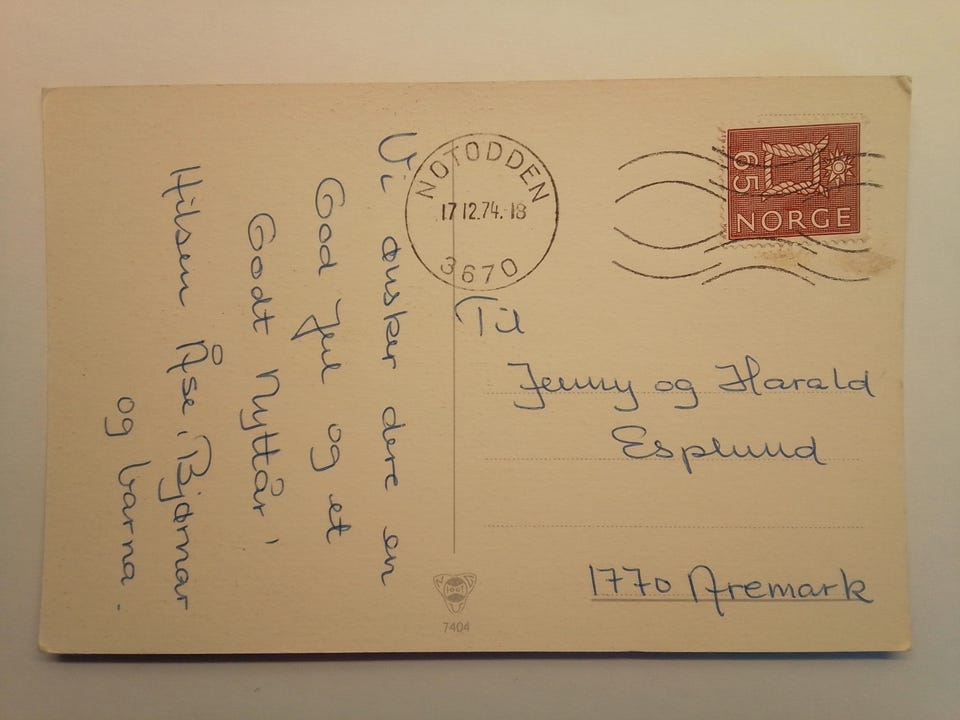 Vi ønsker dere en
God Jul og et
Godt Nyttår!
Hilsen Åse, Bjørnar
og barna.
NOTODDEN
17 12.74.-18
3670
65
NORGE
Til
Jenny og Harald
Esplund
1770 Aremark
7404